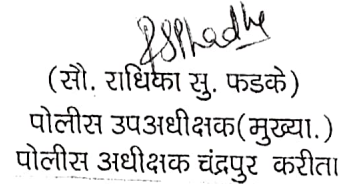 (सौ. राधिका सु. फडके)
पोलीस उपअधीक्षक(मुख्या.)
पोलीस अधीक्षक चंद्रपुर करीता